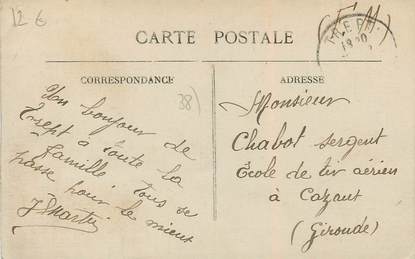 12 €
(F.M)
TREPT
18 30
CARTE POSTALE
CORRESPONDANCE
ADRESSE
38)
Un bonjour de
Trept à toute la
famille, tous se
passe pour le mieux
JMartin
Monsieur
Chabot sergent
École de tir aérien
à Cazaut
(Gironde)